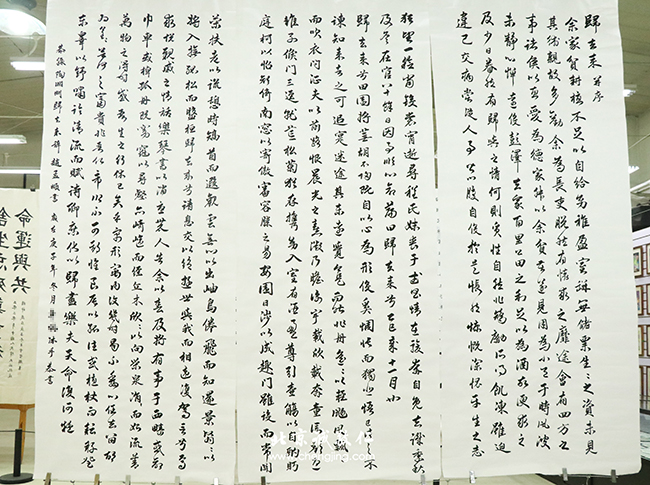 歸去來 并序
余家貧耕植不足以自給幼稚盈室缾無儲粟生生之資未見
其術親故多勸余為長吏脫然有懷求之靡途會有四方之
事諸侯以惠愛為德家叔以余貧苦遂見用為小邑于時風波
未靜心憚遠役彭澤去家百里公田之利足以為酒故便求之
及少日眷然有歸歟之情何則質性自然非矯勵所得飢凍雖迫
違己交病嘗從人事皆口腹自役於是悵然慷慨深愧平生之志
猶望一稔當斂裳宵逝尋程氏妹喪于武昌情在駿奔自免去職仲秋
及冬在官八十餘日因事順心命篇曰歸去來兮乙巳歲十一月也
歸去來兮田園將蕪胡不歸既自以心為形役奚惆悵而獨悲悟已往之不
諫知來者之可追實迷途其未遠覺今是而昨非舟遙遙以輕颺風飄飄
而吹衣問征夫以前路恨晨光之熹微乃瞻衡宇載欣載奔童僕歡迎
稚子候門三逕就荒松菊猶存攜幼入室有酒盈尊引壺觴以自酌眄
庭柯以怡顏倚南窗以寄傲審容膝之易安園日涉以成趣門雖設而常關
策扶老以流憩時矯首而遐觀雲無心以出岫鳥倦飛而知還景翳翳以
將入撫孤松而盤桓歸去來兮請息交以絕遊世與我而相違復駕言兮焉
求悅親戚之情話樂琴書以消憂農人告余以春及將有事于西疇或命
巾車或棹孤舟既窈窕以尋壑亦崎嶇而經丘木欣欣以向榮泉涓涓而始流善
萬物之得時感吾生之行休已矣乎寓形宇內復幾時曷不委心任去留胡
為乎遑遑欲何之富貴非吾願帝鄉不可期懷良辰以孤往或植杖而耘耔登
東皋以舒嘯臨清流而賦詩聊乘化以歸盡樂夫天命復何疑
恭錄陶淵明歸去來辭 歲在庚子年冬月 書
命運與共